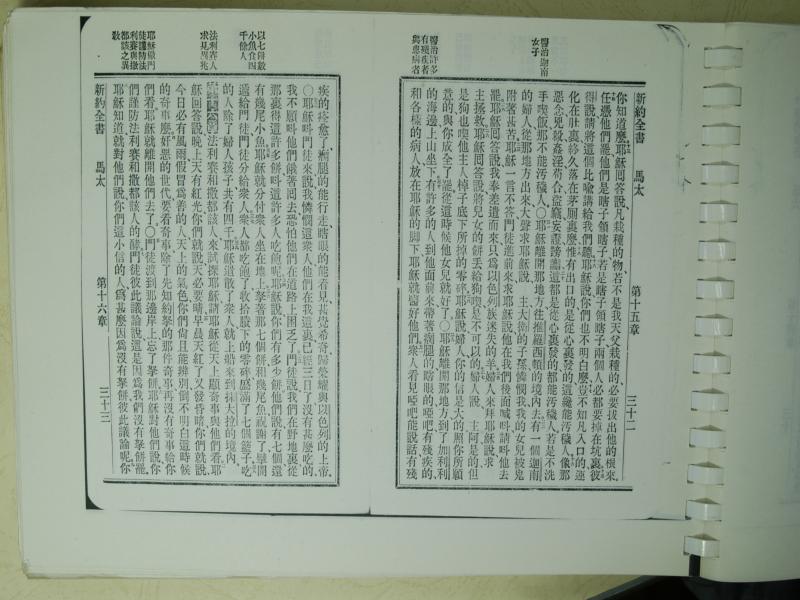 新約全書 馬太 第十五章 三十二
你知道麼、耶穌回答說、凡栽種的物、若不是我天父栽種的、必要拔出他的根來、
任憑他們罷、他們是瞎子領瞎子、若是瞎子領瞎子、兩個人必都要掉在坑裏、彼
得說、請將這個比喻講給我們聽、耶穌說、你們也不明白麼、豈不知凡入口的、運
化在肚裏、終久落在茅厠裏麼、惟有出口的、是從心裏發的、這纔能汚穢人、像那
惡念、兇殺、姦淫、苟合、盜竊、妄證、謗讟、這都是從心裏發的、都能汚穢人、若是不洗
手喫飯、那不能汚穢人、○耶穌離開那地方、往推羅西頓的境內去、有一個迦南
的婦人、從那地方出來、大聲求耶穌說、主大衛的子孫、憐憫我、我的女兒被鬼
附著甚苦、耶穌一言不答、門徒進前來、求耶穌說、他在我們後面喊呌、請呌他去
罷、耶穌回答說、我奉差遣而來、只爲以色列族迷失的羊、婦人來拜耶穌說、求
主拯救、耶穌回答說、將兒女的餅、丟給狗喫、是不可的、婦人說、主阿、是的、但
是狗也喫他主人棹子底下所掉的零碎、耶穌說、婦人、你的信是大的、照你所願
意的、與你成全了罷、從這時候、他女兒就好了、○耶穌離開那地方、到了加利利
的海邊、上山坐下、有許多的人到他面前來、帶著瘸腿的、瞎眼的、啞吧、有殘疾的、
和各樣的病人、放在耶穌的脚下、耶穌就醫好他們、衆人看見啞吧能說話、有殘
醫治迦南
女子
醫治許多
有殘疾者
與患病者
疾的痊愈了、瘸腿的能行走、瞎眼的能看見、甚覺希奇、歸榮耀與以色列的上帝、
○耶穌呌門徒來、說、我憐憫這衆人、他們在我這裏、已經三日了、沒有甚麼吃的、
我不願呌他們餓著囘去、恐怕他們在道路上困乏了、門徒說、我們在野地、裏從
那裏得這許多餅、呌這許多人吃飽呢、耶穌說、你們有多少餅、他們說、有七個、還
有幾尾小魚、耶穌就分付衆人坐在地上、拏著那七個餅和幾尾魚、祝謝了、擘開
遞給門徒、門徒分給衆人、衆人都吃飽了、收拾賸下的零碎、盛滿了七個籃子、吃
的人、除了婦人孩子、共有四千、耶穌遣散了衆人、就上船、來到抹大拉的境內、
法利賽和撒都該人、來試探耶穌、請耶穌從天上顯奇事與他們看、耶
穌回答說、晚上天有紅光、你們就說、天必要晴、早晨天紅了、又發昏暗、你們就說、
今日必有風雨、假冒爲善的人、天上的氣色、你們尙且能辨別、倒不明白這時候
的奇事麼、奸惡的世代、要看奇事、除了先知約拏的那件奇事、再沒有奇事給你
們看、耶穌就離開他們去了、○門徒渡到那邊岸上、忘了拏餅、耶穌對他們說、你
們謹防法利賽和撒都該人的酵、門徒彼此議論說、這是因爲我們沒有拏餅罷、
耶穌知道、就對他們說、你們這小信的人、爲甚麼因爲沒有拏餅、彼此議論呢、你
新約全書 馬太 第十六章 三十三
以七餅數
小魚食四
千餘人
法利賽人
求見異兆
耶穌儆門
徒謹防法
利賽與撒
都該之異
敎